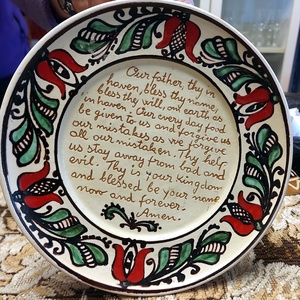 Our father, thy in
haven, bless thy name,
bless thy will, on earth as
in haven. Our every day food
be given to us and forgive us
our mistakes as we forgive
all our mistaken. Thy help
us stay away from bad and
evil. Thy is your Kingdom
and blessed be your name
now and forever.
Amen.